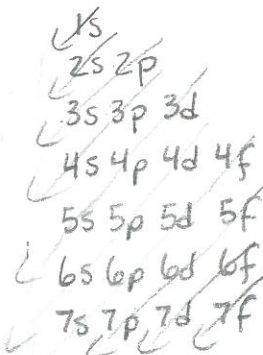 1s
2s 2p
3s 3p 3d
4s 4p 4d 4f
5s 5p 5d 5f
6s 6p 6d 6f
7s 7p 7d 7f